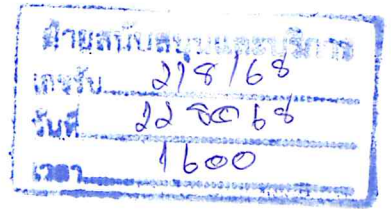 ฝ่ายสนับสนุนและบริการ
เลขรับ 218/68
วันที่ 22 68
เวลา 1600